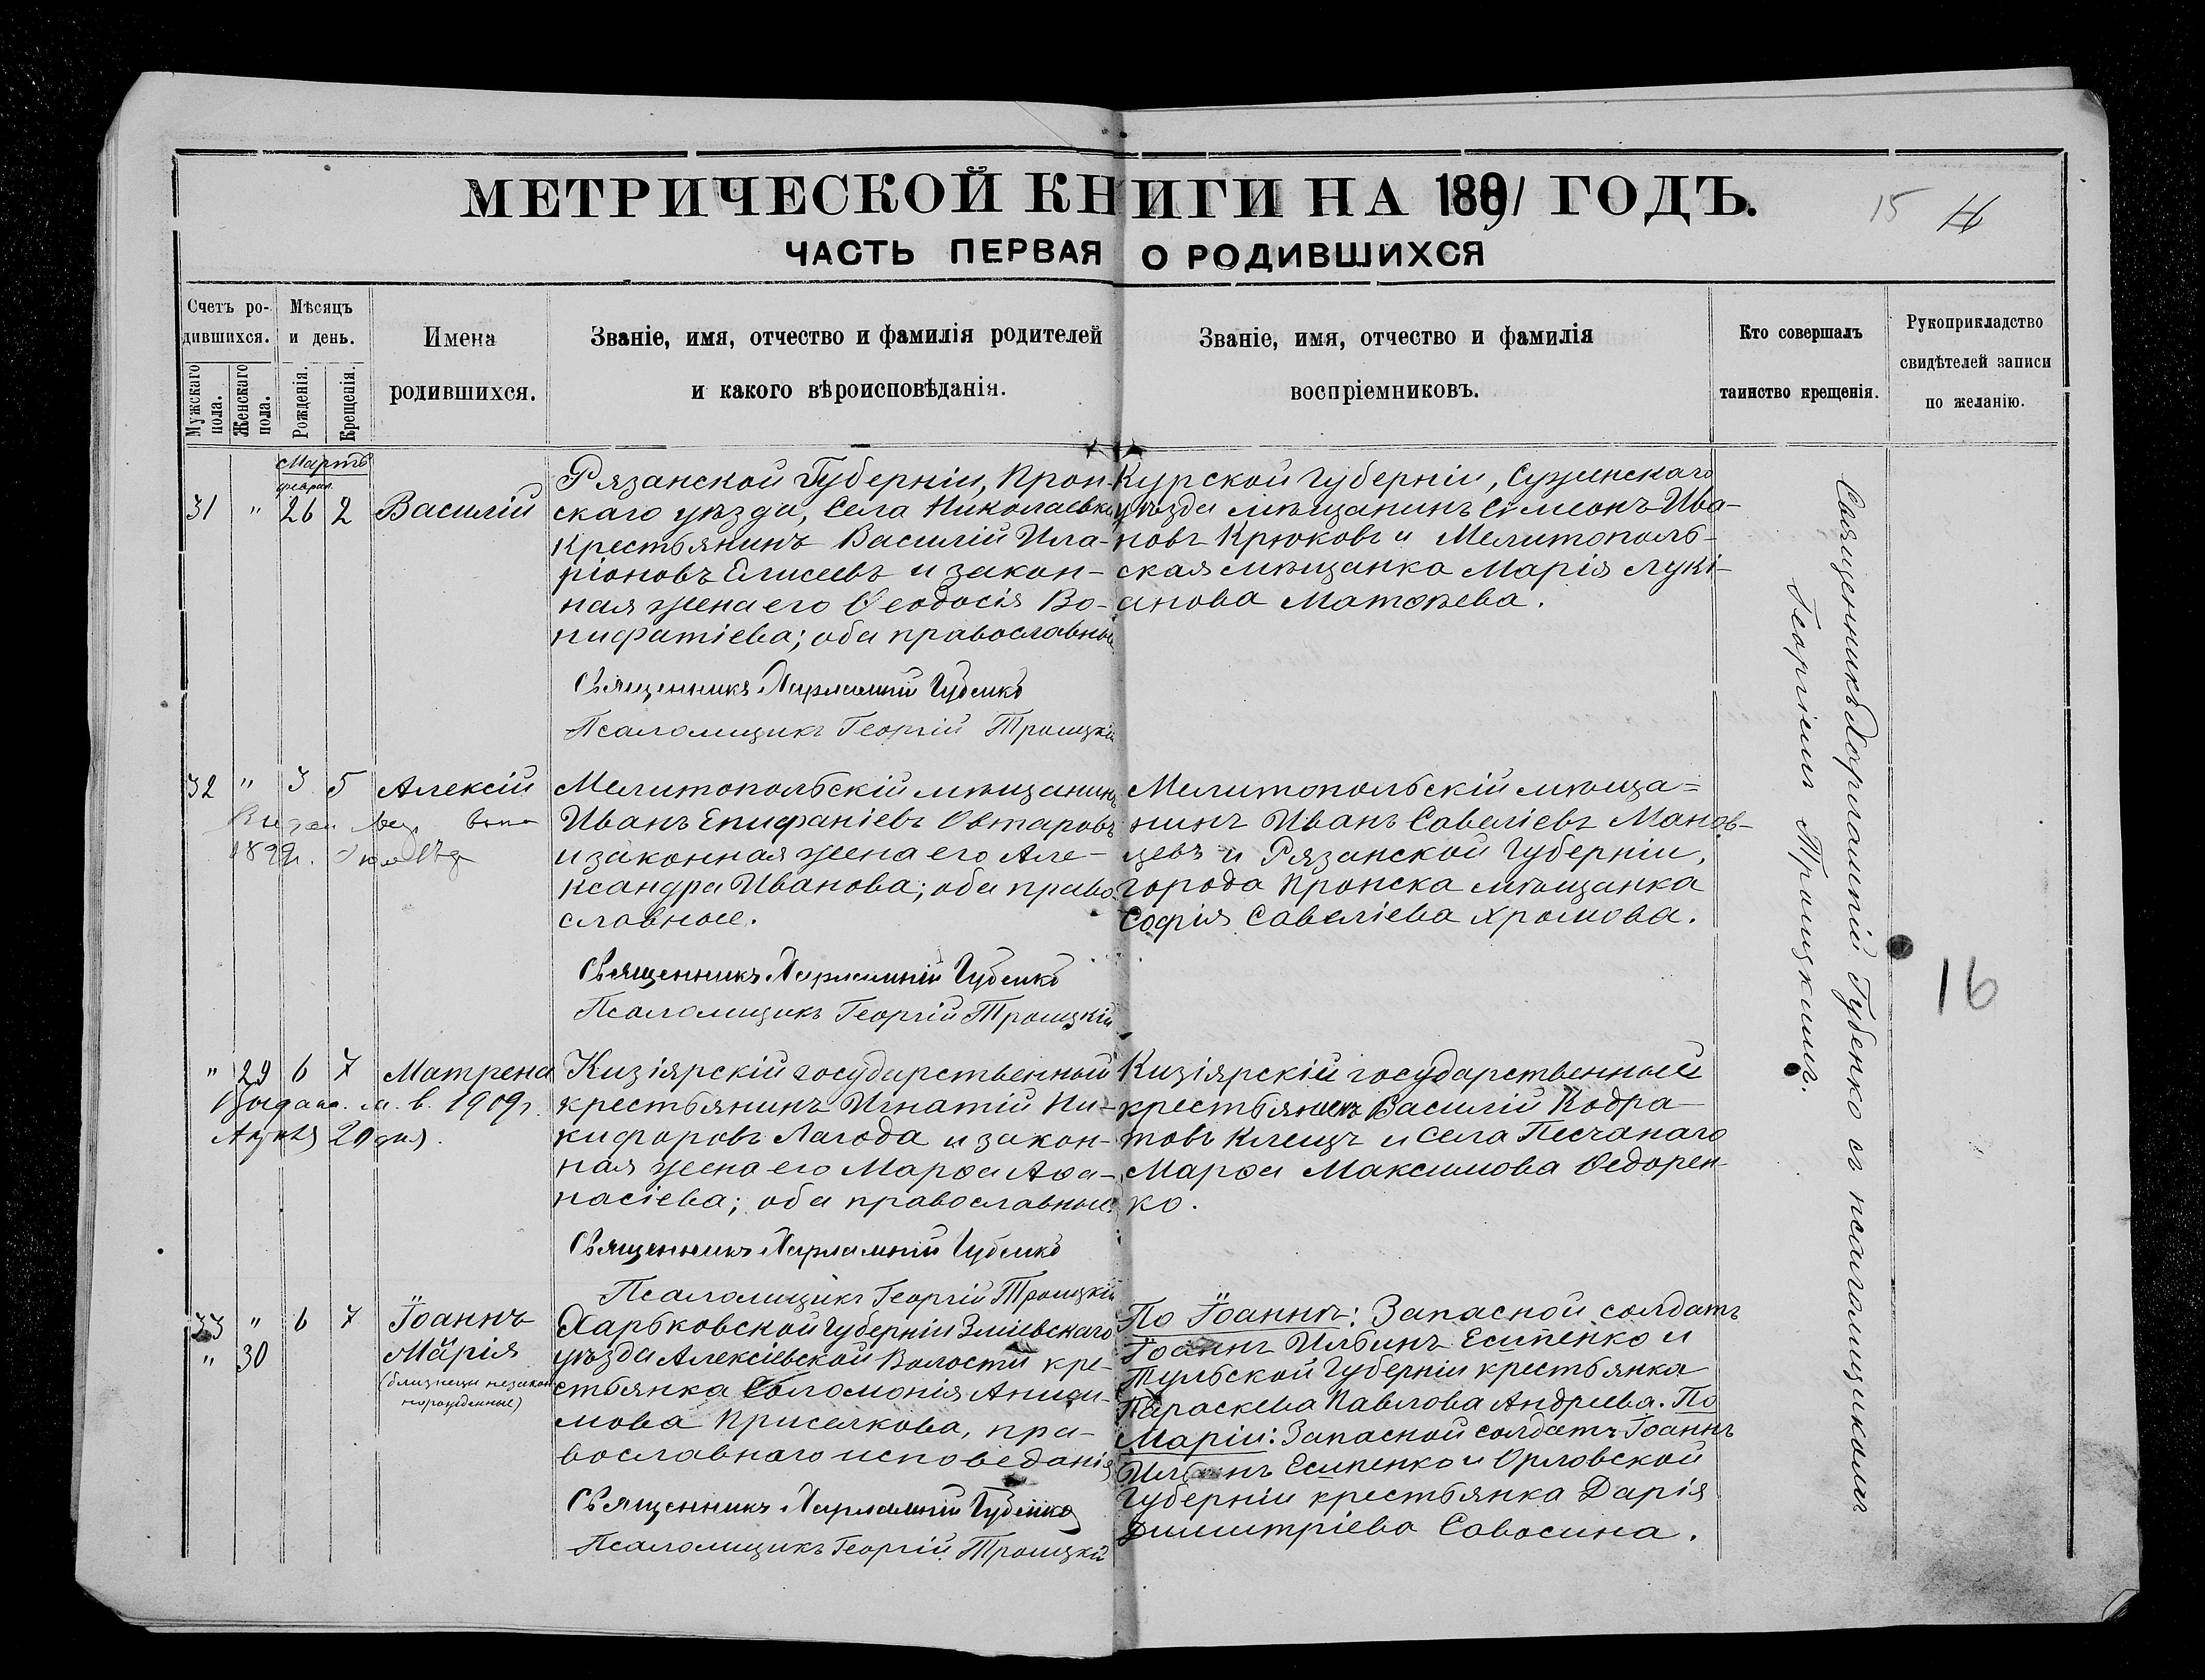 МЕТРИЧЕСКОЙ КНИГИ НА 1891 ГОДЪ.
15 16
ЧАСТЬ ПЕРВАЯ О РОДИВШИХСЯ
Счетъ ро-
дившихся.
Мужскаго пола.
Женскаго пола.
Мѣсяцъ
и день.
Рожденія.
Крещенія.
Имена
родившихся.
Званіе, имя, отчество и фамилія родителей
и какого вѣроисповѣданія.
Званіе, имя, отчество и фамилія
воспріемниковъ.
Кто совершалъ
таинство крещенія.
Рукоприкладство
свидѣтелей записи
по желанію.
Мартъ
феврал.
31 " 26 2 Василій
Рязанской Губерніи, Прон-
скаго уѣзда, Села Николаевки
крестьянинъ Василій Ила-
ріоновъ Елисеевъ и закон-
ная жена его Ѳеодосія Во-
нифатіева; оба православные
Священникъ Харлампій Губенко
Псаломщикъ Георгій Троицкій
Курской губерніи, Суженскаго
уѣзда мѣщанинъ Симеонъ Ива-
новъ Крюковъ и Мелитополь-
ская мѣщанка Марія Лукі-
анова Матвѣева.
32 " 3 5 Алексій
1899г.
Мелитопольскій мѣщанинъ
Иванъ Епифаніевъ Овтаровъ
и законная жена его Але-
ксандра Иванова; оба право-
славные.
Священникъ Харлампій Губенко
Псаломщикъ Георгій Троицкій
Мелитопольскій мѣща=
нинъ Иванъ Савеліевъ Манов-
цевъ и Рязанской Губерніи,
города Пронска мѣщанка
Софія Савеліева Хромова.
" 29 6 7 Матрена
Выдана м. в. 1909г.
20 дня.
Кизіярскій государственный
крестьянинъ Игнатій Ни-
кифоровъ Лагода и закон-
ная жена его Марѳа Аѳа-
насіева; оба православные
Священникъ Харлампій Губенко
Псаломщикъ Георгій Троицкій
Кизіярскій государственный
крестьянинъ Василій Кодра-
товъ Клещъ и села Песчанаго
Марѳа Максимова Ѳедорен-
ко.
33 " 6 7 Іоаннъ
" 30 Марія
(близнецы незакон-
норожденные)
Харьковской губерніи Зміевскаго
уѣзда Алексіевской Волости кре-
стьянка Соломонія Аниси-
мова Приселкова, пра-
вославнаго исповеданія
Священникъ Харлампій Губенко
Псаломщикъ Георгій Троицкій
По Іоаннѣ: Запасной солдатъ
Іоаннъ Ильинъ Есипенко и
Тульской Губерніи крестьянка
Параскева Павлова Андреева. По
Маріи: Запасной солдатъ Іоаннъ
Ильинъ Есипенко и Орловской
губерніи крестьянка Дарія
Димитріева Савосина.
Священникъ Харлампій Губенко съ псаломщикомъ
Георгіемъ Троицкимъ.
16